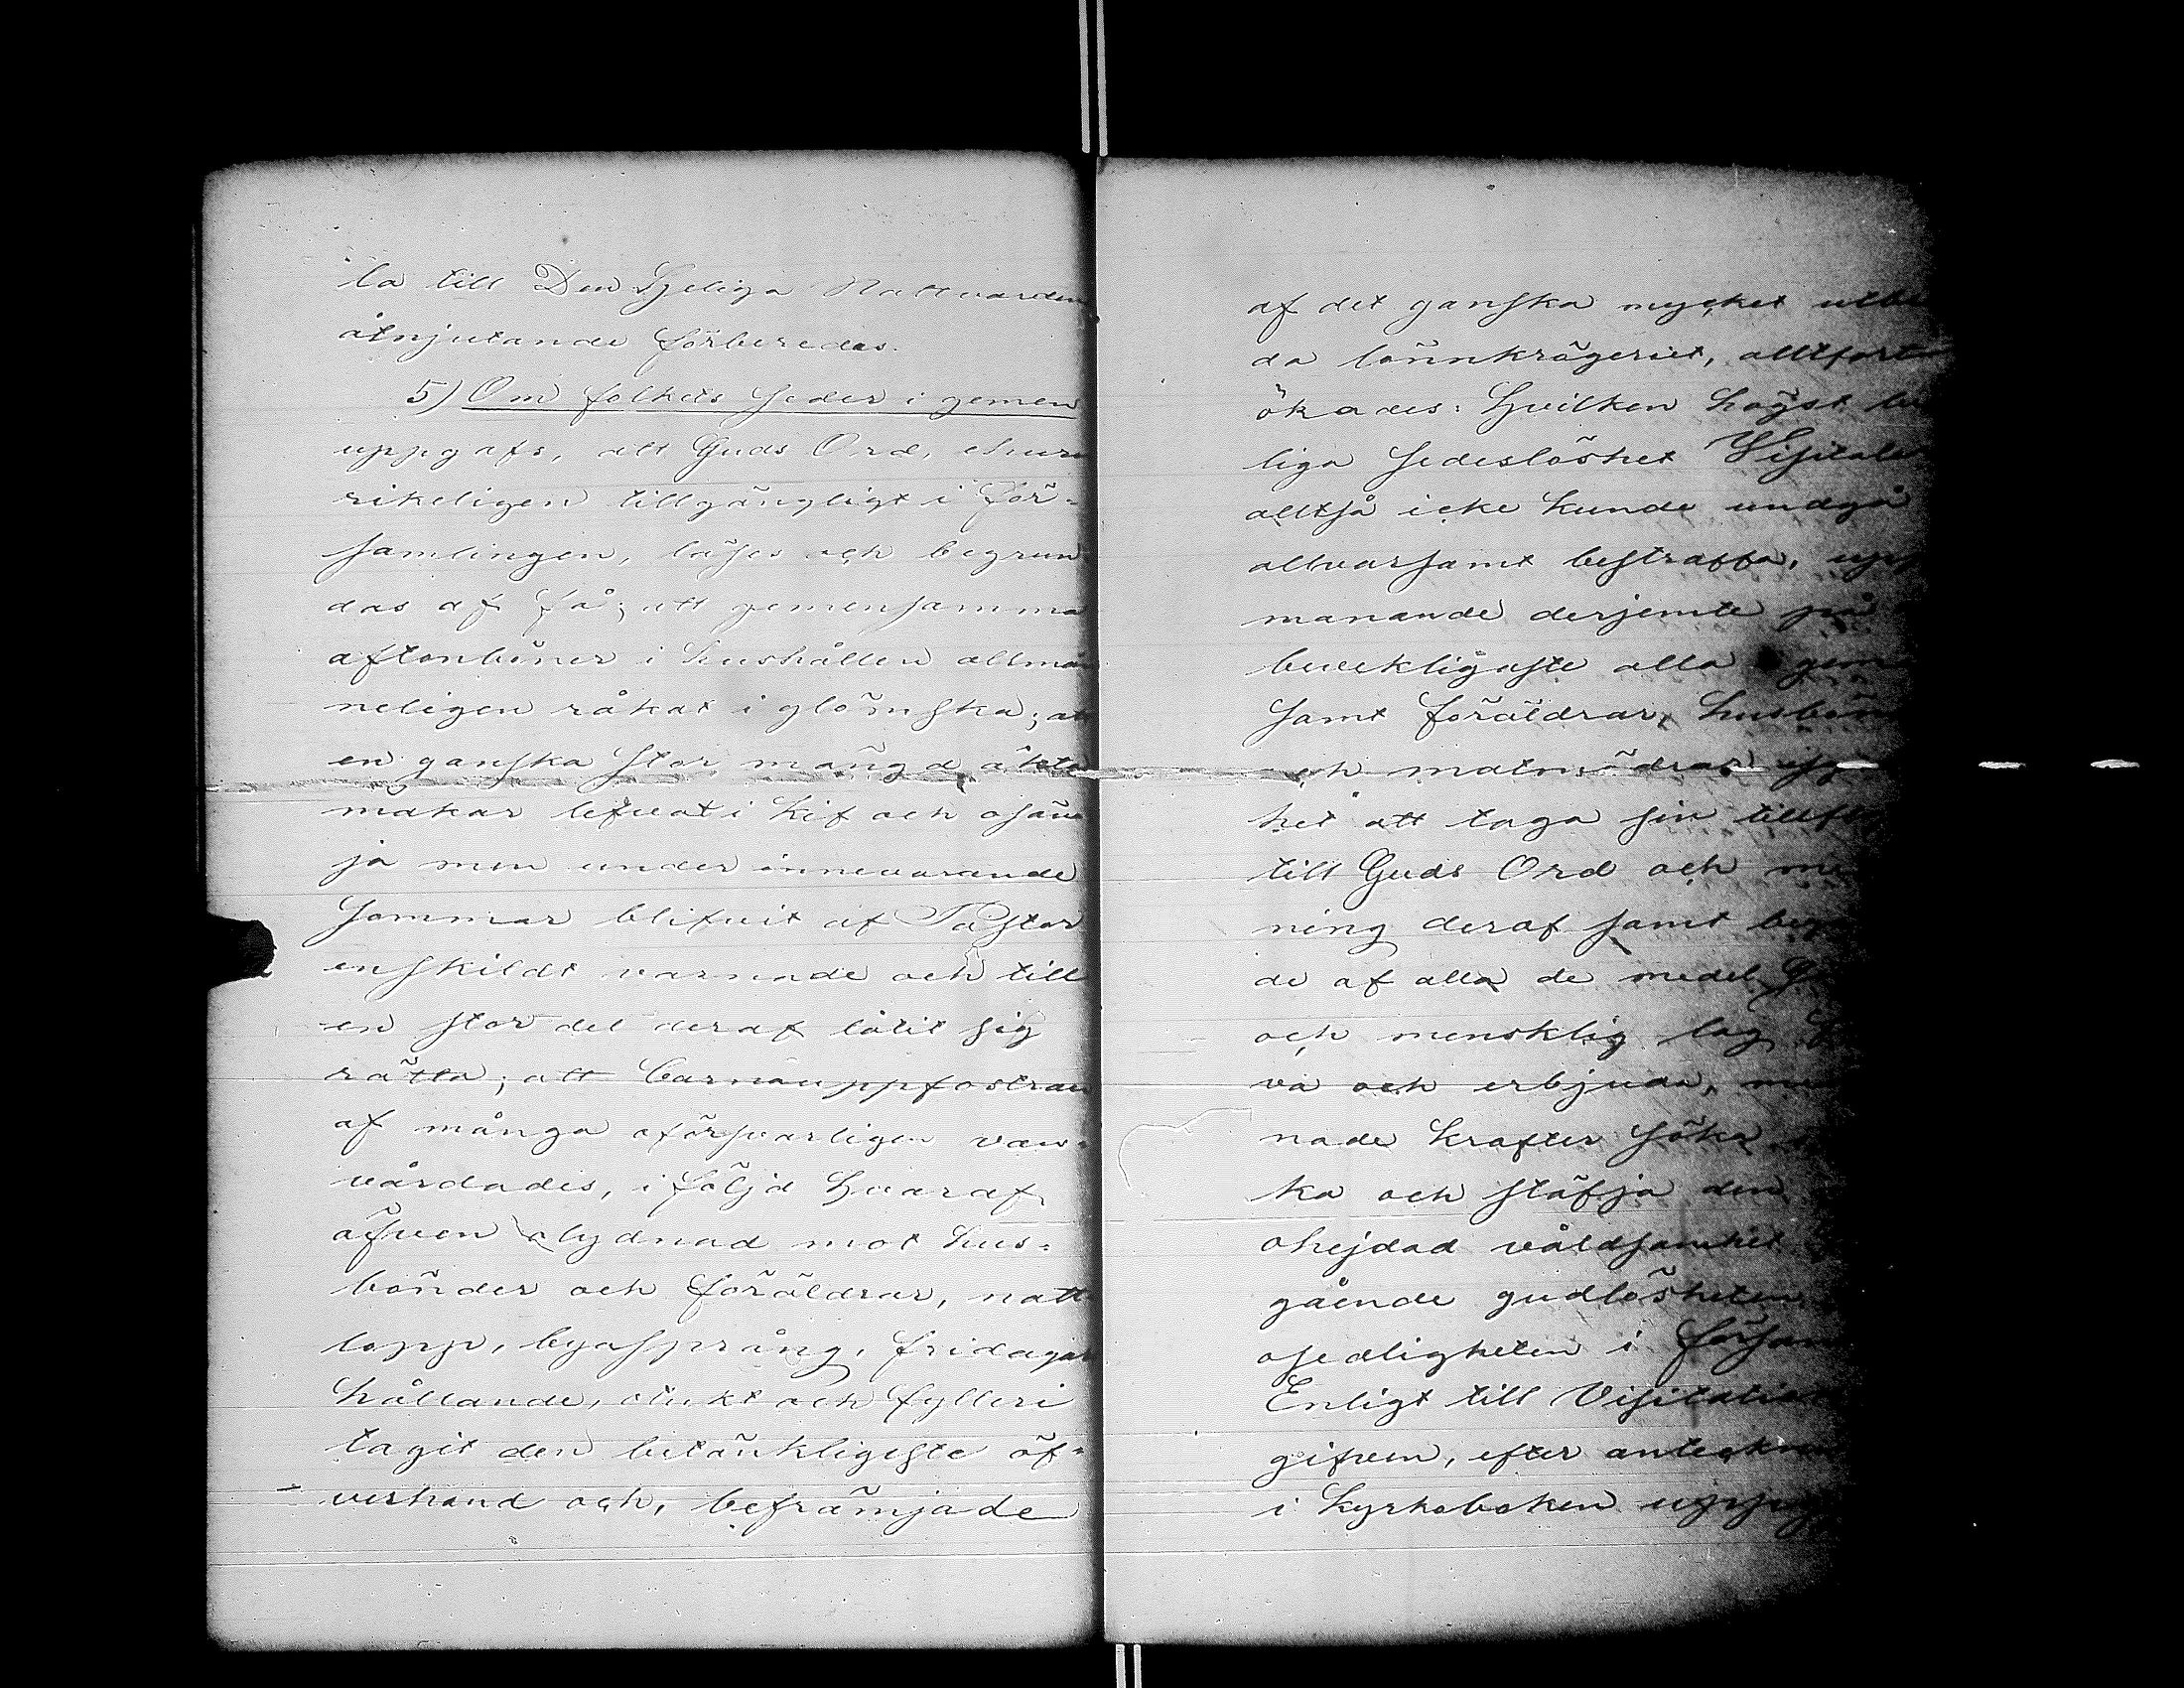 la till Den Heliga Nattvarden
åtnjutande förberedas.
5) Om folkets seder i gemen
uppgafs, att Guds Ord, ehuru
rikeligen tillgängligt i för-
samlingen, läses och begrun
das af få; att gemensamma
aftonböner i hushållen allmän
neligen råkat i glömska; att
en ganska stor mängd äkta
makar lefvat i kif och osäm
ja men under innevarande
sommar blifvit af Pastor
enskildt varnade och till
en stor del deraf låtit sig
rätta; att barnauppfostran
af många oförsvarligen van-
vårdades, i följd hvaraf
äfven olydnad mot hus-
bönder och föräldrar, natt
lopp, byasprång, fridagar
hållande, otukt och fylleri
tagit den betänkligaste öf-
verhand och, befrämjade
af det ganska mycket utbre
da lönnkrögeriet, alltfort
ökades: Hvilken högst
liga sedeslöshet Visitator
alltså icke kunde undgå
allvarsamt bestraffa, upp
manande derjemte på
bevekligaste alla
samt föräldrar, husbön
och matmödrar
het att taga sin tillfl
till Guds Ord och
ning deraf samt
de af alla de medel
och mensklig lag
va och erbjuda,
nade krafter söka
ka och stäfja den
ohejdad våldsamhet
gående gudlösheten
osedligheten i försam
Enligt till Visitation
gifven, efter anteckn
i kyrkoboken